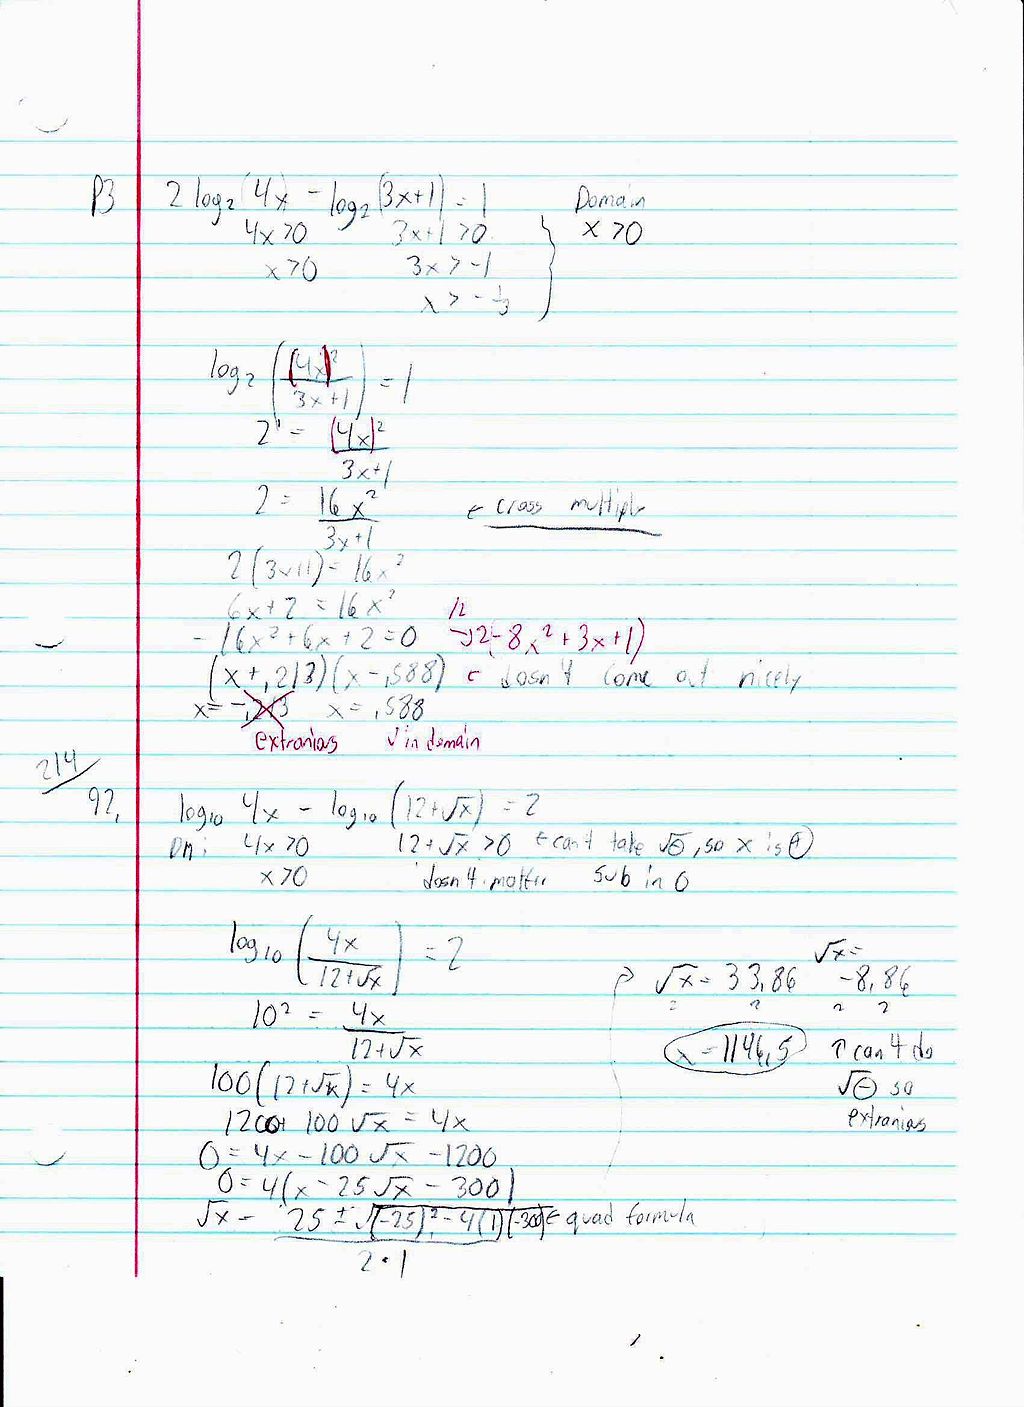 P3 2 log₂(4x) - log₂(3x+1) = 1 Domain
4x>0 3x+1>0 x>0
x>0 3x>-1
x>-1/3
log₂((4x)²/(3x+1)) = 1
2¹ = (4x)²/(3x+1)
2 = 16x²/(3x+1) ← cross multiply
2(3x+1) = 16x²
6x+2 = 16x² /2
-16x²+6x+2=0 → 2(-8x²+3x+1)
(x+,213)(x-,588) ← dosn't come out nicely
x=-,213 x=,588
extranious √ in domain
214/
92, log₁₀ 4x - log₁₀(12+√x) = 2
Dm: 4x>0 12+√x>0 ← can't take √⊖, so x is ⊕
x>0 dosn't matter sub in 0
log₁₀(4x/(12+√x)) = 2
10² = 4x/(12+√x)
100(12+√x) = 4x
1200+ 100√x = 4x
0=4x-100√x-1200
0=4(x-25√x-300)
√x = 25±√(-25)²-4(1)(-300) ← quad formula
2·1
√x=
√x=33,86 -8,86
x=1146,5 ↑ can't do
√⊖ so
extranious